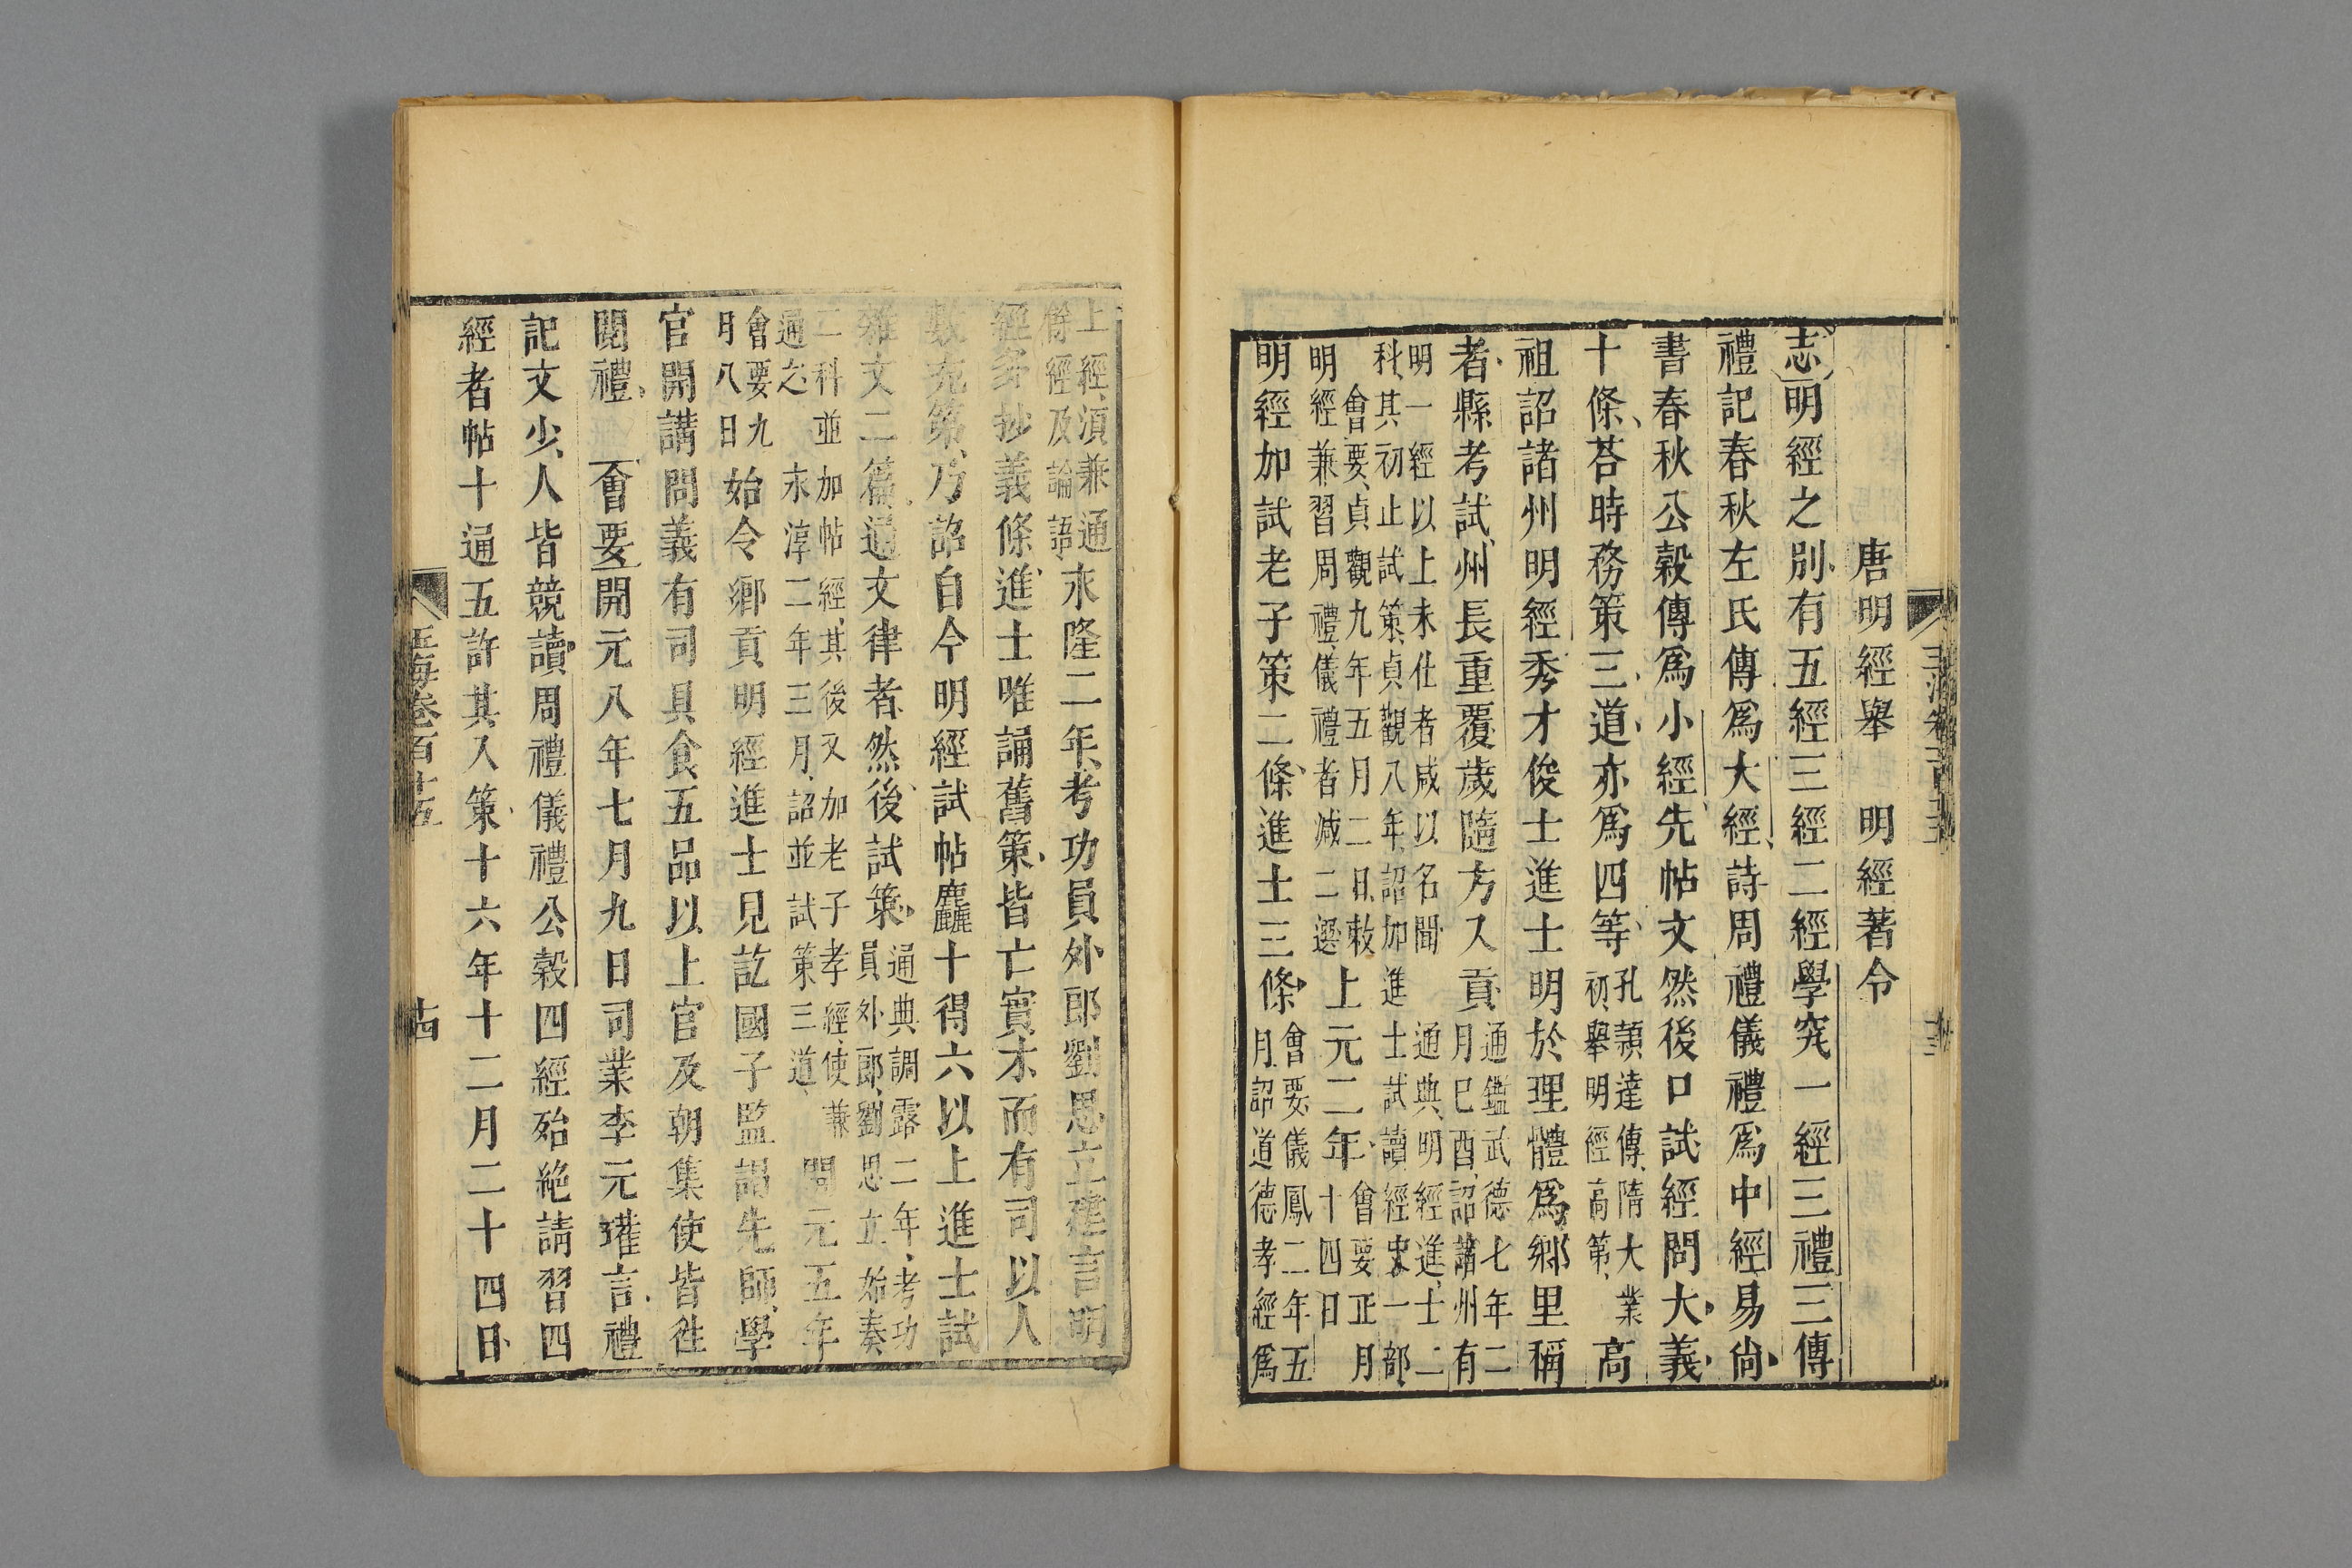 唐明經舉　明經著令
志明經之別有五經三經二經學究一經三禮三傳
禮記春秋左氏傳爲大經詩周禮儀禮爲中經易尙
書春秋公穀傳爲小經先帖文然後口試經問大義
十條荅時務策三道亦爲四等孔頴達傳隋大業初舉明經高第高
祖詔諸州明經秀才俊士進士明於理體爲鄉里稱
者縣考試州長重覆歲隨方入貢通鑑武德七年二月巳酉詔諸州有
明一經以上未仕者咸以名聞　通典明經進士二
科其初止試策貞觀八年詔加進士試讀經史一部
會要貞觀九年五月二日敕明經兼習周禮儀禮者减二選上元二年會要正月十四日
明經加試老子策二條進士三條會要儀鳳二年五月詔道德孝經爲
上經湏兼通餘經及論語永隆二年考功員外郎劉思立建言明
經多抄義條進士唯誦舊策皆亡實才而有司以人
數充第乃詔自今明經試帖麤十得六以上進士試
雜文二篇通文律者然後試策通典調露二年考功員外郎劉思立始奏
二科並加帖經其後又加老子孝經使兼通之　永淳二年三月詔並試策三道開元五年
會要九月八日始令鄉貢明經進士見訖國子監謁先師學
官開講問義有司具食五品以上官及朝集使皆徃
閱禮　會要開元八年七月九日司業李元瓘言禮
記文少人皆競讀周禮儀禮公穀四經殆絶請習四
經者帖十通五許其入策十六年十二月二十四日
玉海卷百十五　十四